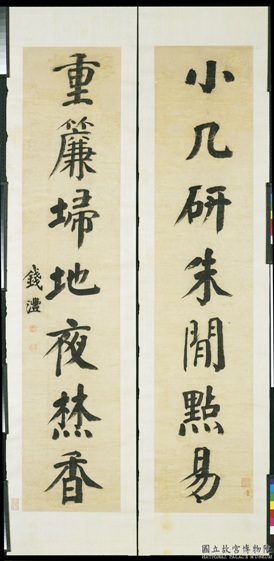 小几研朱閒點易
重簾埽地夜爇香
錢灃
國立故宮博物院
NATIONAL PALACE MUSEUM